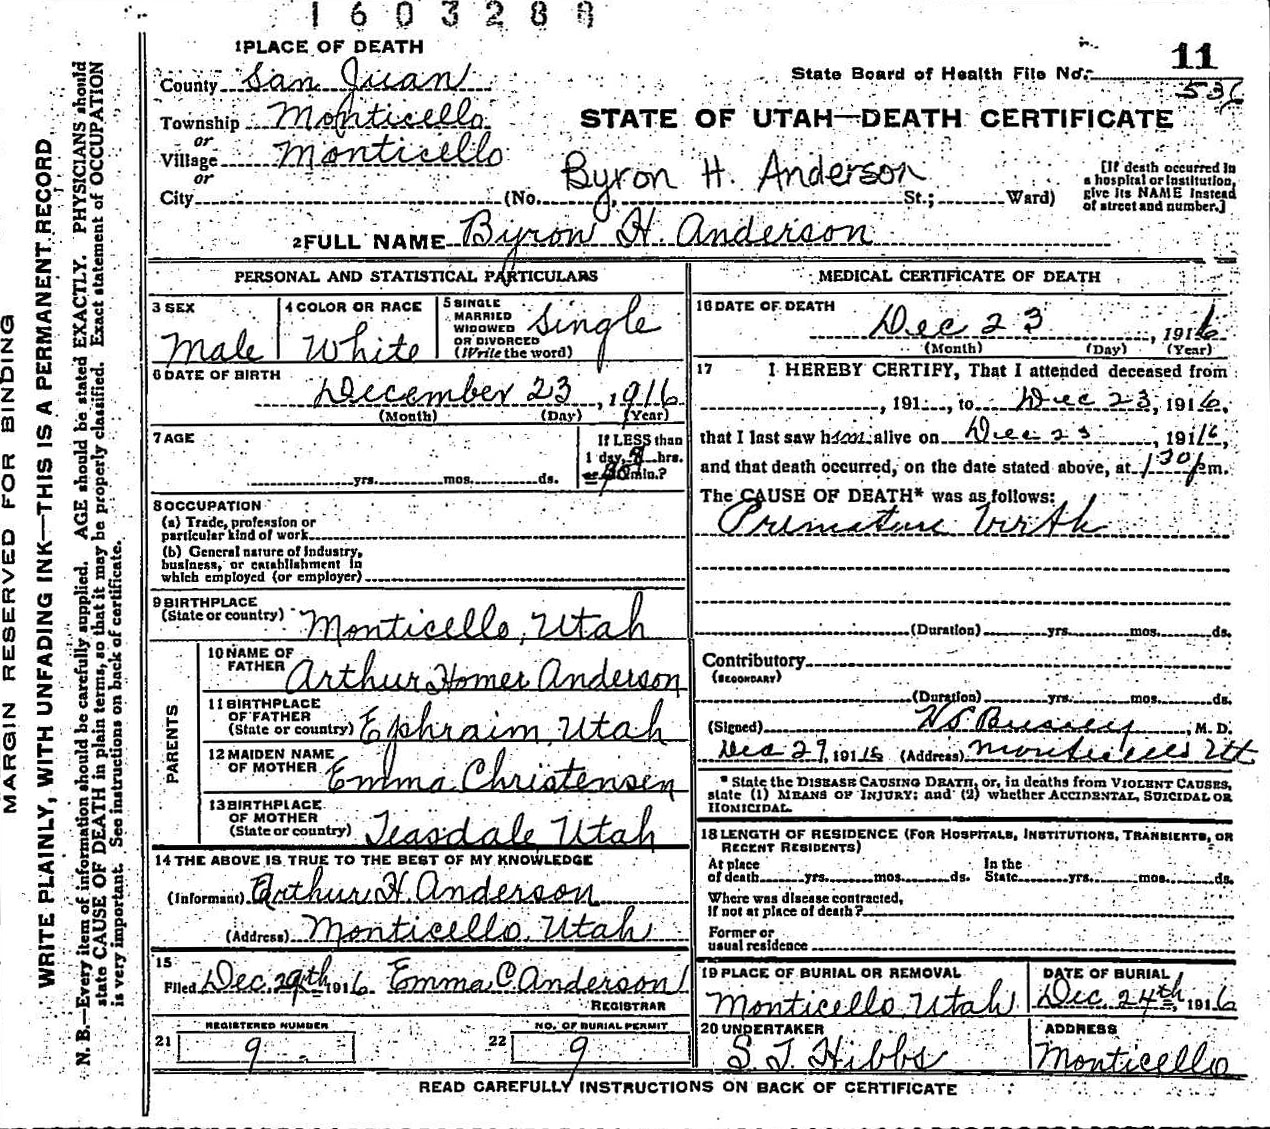 1603288
1 PLACE OF DEATH
11
State Board of Health File No.
536
County San Juan
Township Monticello
or
Village Monticello
or
City (No. Byron H. Anderson St.; Ward)
STATE OF UTAH—DEATH CERTIFICATE
[If death occurred in
a hospital or institution,
give its NAME instead
of street and number.]
2 FULL NAME Byron H. Anderson
PERSONAL AND STATISTICAL PARTICULARS
3 SEX
Male
4 COLOR OR RACE
White
5 SINGLE
MARRIED
WIDOWED
OR DIVORCED
(Write the word)
Single
6 DATE OF BIRTH
December 23, 1916
(Month) (Day) (Year)
7 AGE
yrs. mos. ds.
If LESS than
1 day, hrs.
or min.?
8 OCCUPATION
(a) Trade, profession or
particular kind of work
(b) General nature of industry,
business, or establishment in
which employed (or employer)
9 BIRTHPLACE
(State or country) Monticello, Utah
PARENTS
10 NAME OF
FATHER Arthur Homer Anderson
11 BIRTHPLACE
OF FATHER
(State or country) Ephraim, Utah
12 MAIDEN NAME
OF MOTHER Emma Christensen
13 BIRTHPLACE
OF MOTHER
(State or country) Teasdale, Utah
14 THE ABOVE IS TRUE TO THE BEST OF MY KNOWLEDGE
(Informant) Arthur H. Anderson
(Address) Monticello, Utah
15
Filed Dec. 29th 1916 Emma C Anderson
REGISTRAR
REGISTERED NUMBER
21 9
NO. OF BURIAL PERMIT
22 9
MEDICAL CERTIFICATE OF DEATH
16 DATE OF DEATH
Dec 23, 1916
(Month) (Day) (Year)
17 I HEREBY CERTIFY, That I attended deceased from
, 191 , to Dec 23, 1916,
that I last saw him alive on Dec 23, 1916,
and that death occurred, on the date stated above, at 130 p m.
The CAUSE OF DEATH* was as follows:
Premature birth
(Duration) yrs. mos. ds.
Contributory
(SECONDARY)
(Duration) yrs. mos. ds.
(Signed) , M. D.
Dec 29, 1916 (Address) Monticello Ut
* State the DISEASE CAUSING DEATH, or, in deaths from VIOLENT CAUSES,
state (1) MEANS OF INJURY; and (2) whether ACCIDENTAL, SUICIDAL OR
HOMICIDAL.
18 LENGTH OF RESIDENCE (FOR HOSPITALS, INSTITUTIONS, TRANSIENTS, OR
RECENT RESIDENTS)
At place
of death yrs. mos. ds.
In the
State yrs. mos. ds.
Where was disease contracted,
If not at place of death?
Former or
usual residence
19 PLACE OF BURIAL OR REMOVAL
Monticello, Utah
DATE OF BURIAL
Dec. 24th, 1916
20 UNDERTAKER
S. T. Hibbs
ADDRESS
Monticello
READ CAREFULLY INSTRUCTIONS ON BACK OF CERTIFICATE
MARGIN RESERVED FOR BINDING
WRITE PLAINLY, WITH UNFADING INK—THIS IS A PERMANENT RECORD
N. B.—Every item of information should be carefully supplied. AGE should be stated EXACTLY. PHYSICIANS should
state CAUSE OF DEATH in plain terms, so that it may be properly classified. Exact statement of OCCUPATION
is very important. See instructions on back of certificate.